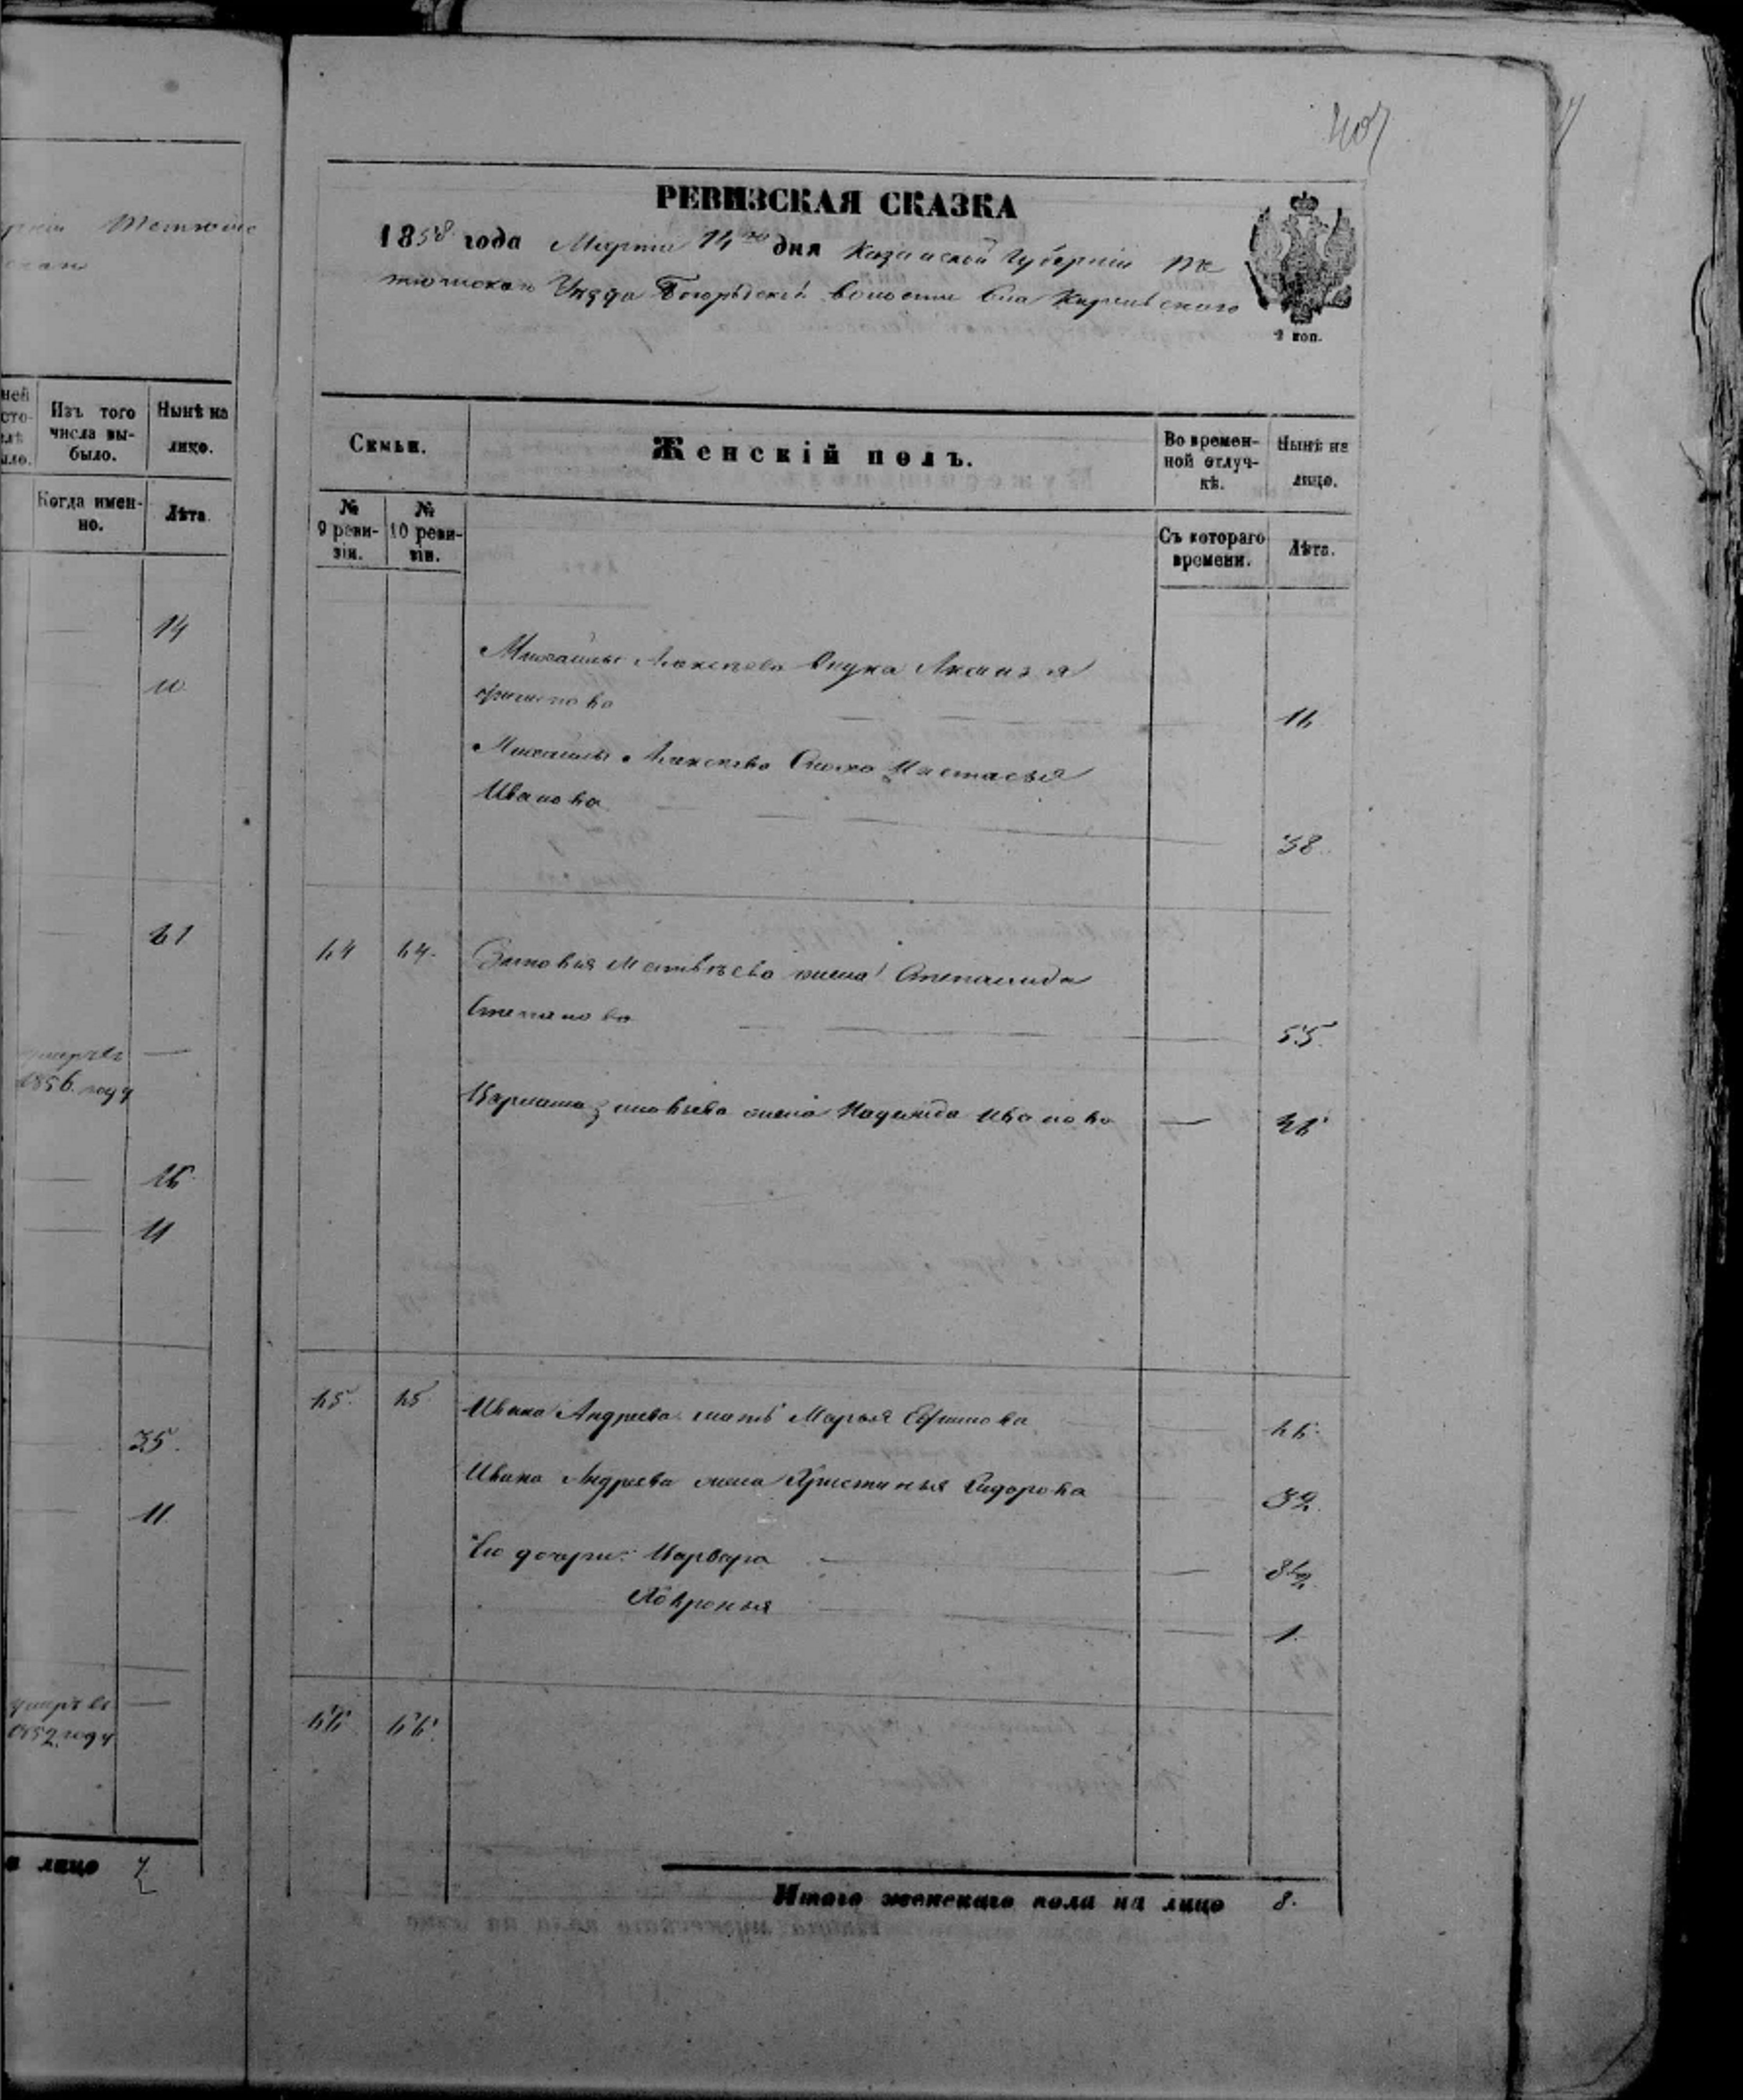 407
РЕВИЗСКАЯ СКАЗКА
1858 года Марта 14го дня Казанской Губернiи Те
тюшскаго Уѣзда волости Села
2 коп.
Семьи.
Женскiй полъ.
Во времен-
ной отлуч-
кѣ.
Нынѣ на
лицо.
№
9 реви-
зiи.
№
10 реви-
зiи.
Съ котораго
времени.
Лѣта.
Михайлы Алексѣева Внука
16
Михайлы Алексѣева Сноха Настасья
Иванова
38.
64 64. Зиновья Матвѣева жена Степанида
Степанова
55.
Варлама Зиновьева жена Надежда Иванова — 26
65. 65. Ивана Андреева мать Марья Ефимова
66.
Ивана Андреева жена Христинья Сидорова
32.
Его дочери: Варвара — 8½
Февронья — 1.
66. 66.
Итого женскаго пола на лицо 8.
ргiи Тетюшс
ней
сто-
алѣ
ыло.
Изъ того
числа вы-
было.
Нынѣ на
лицо.
Когда имен-
но.
Лѣта.
14
10.
61
умеръ въ —
1856. году
16.
11
35.
11.
умеръ въ —
1852. году
а лицо 7